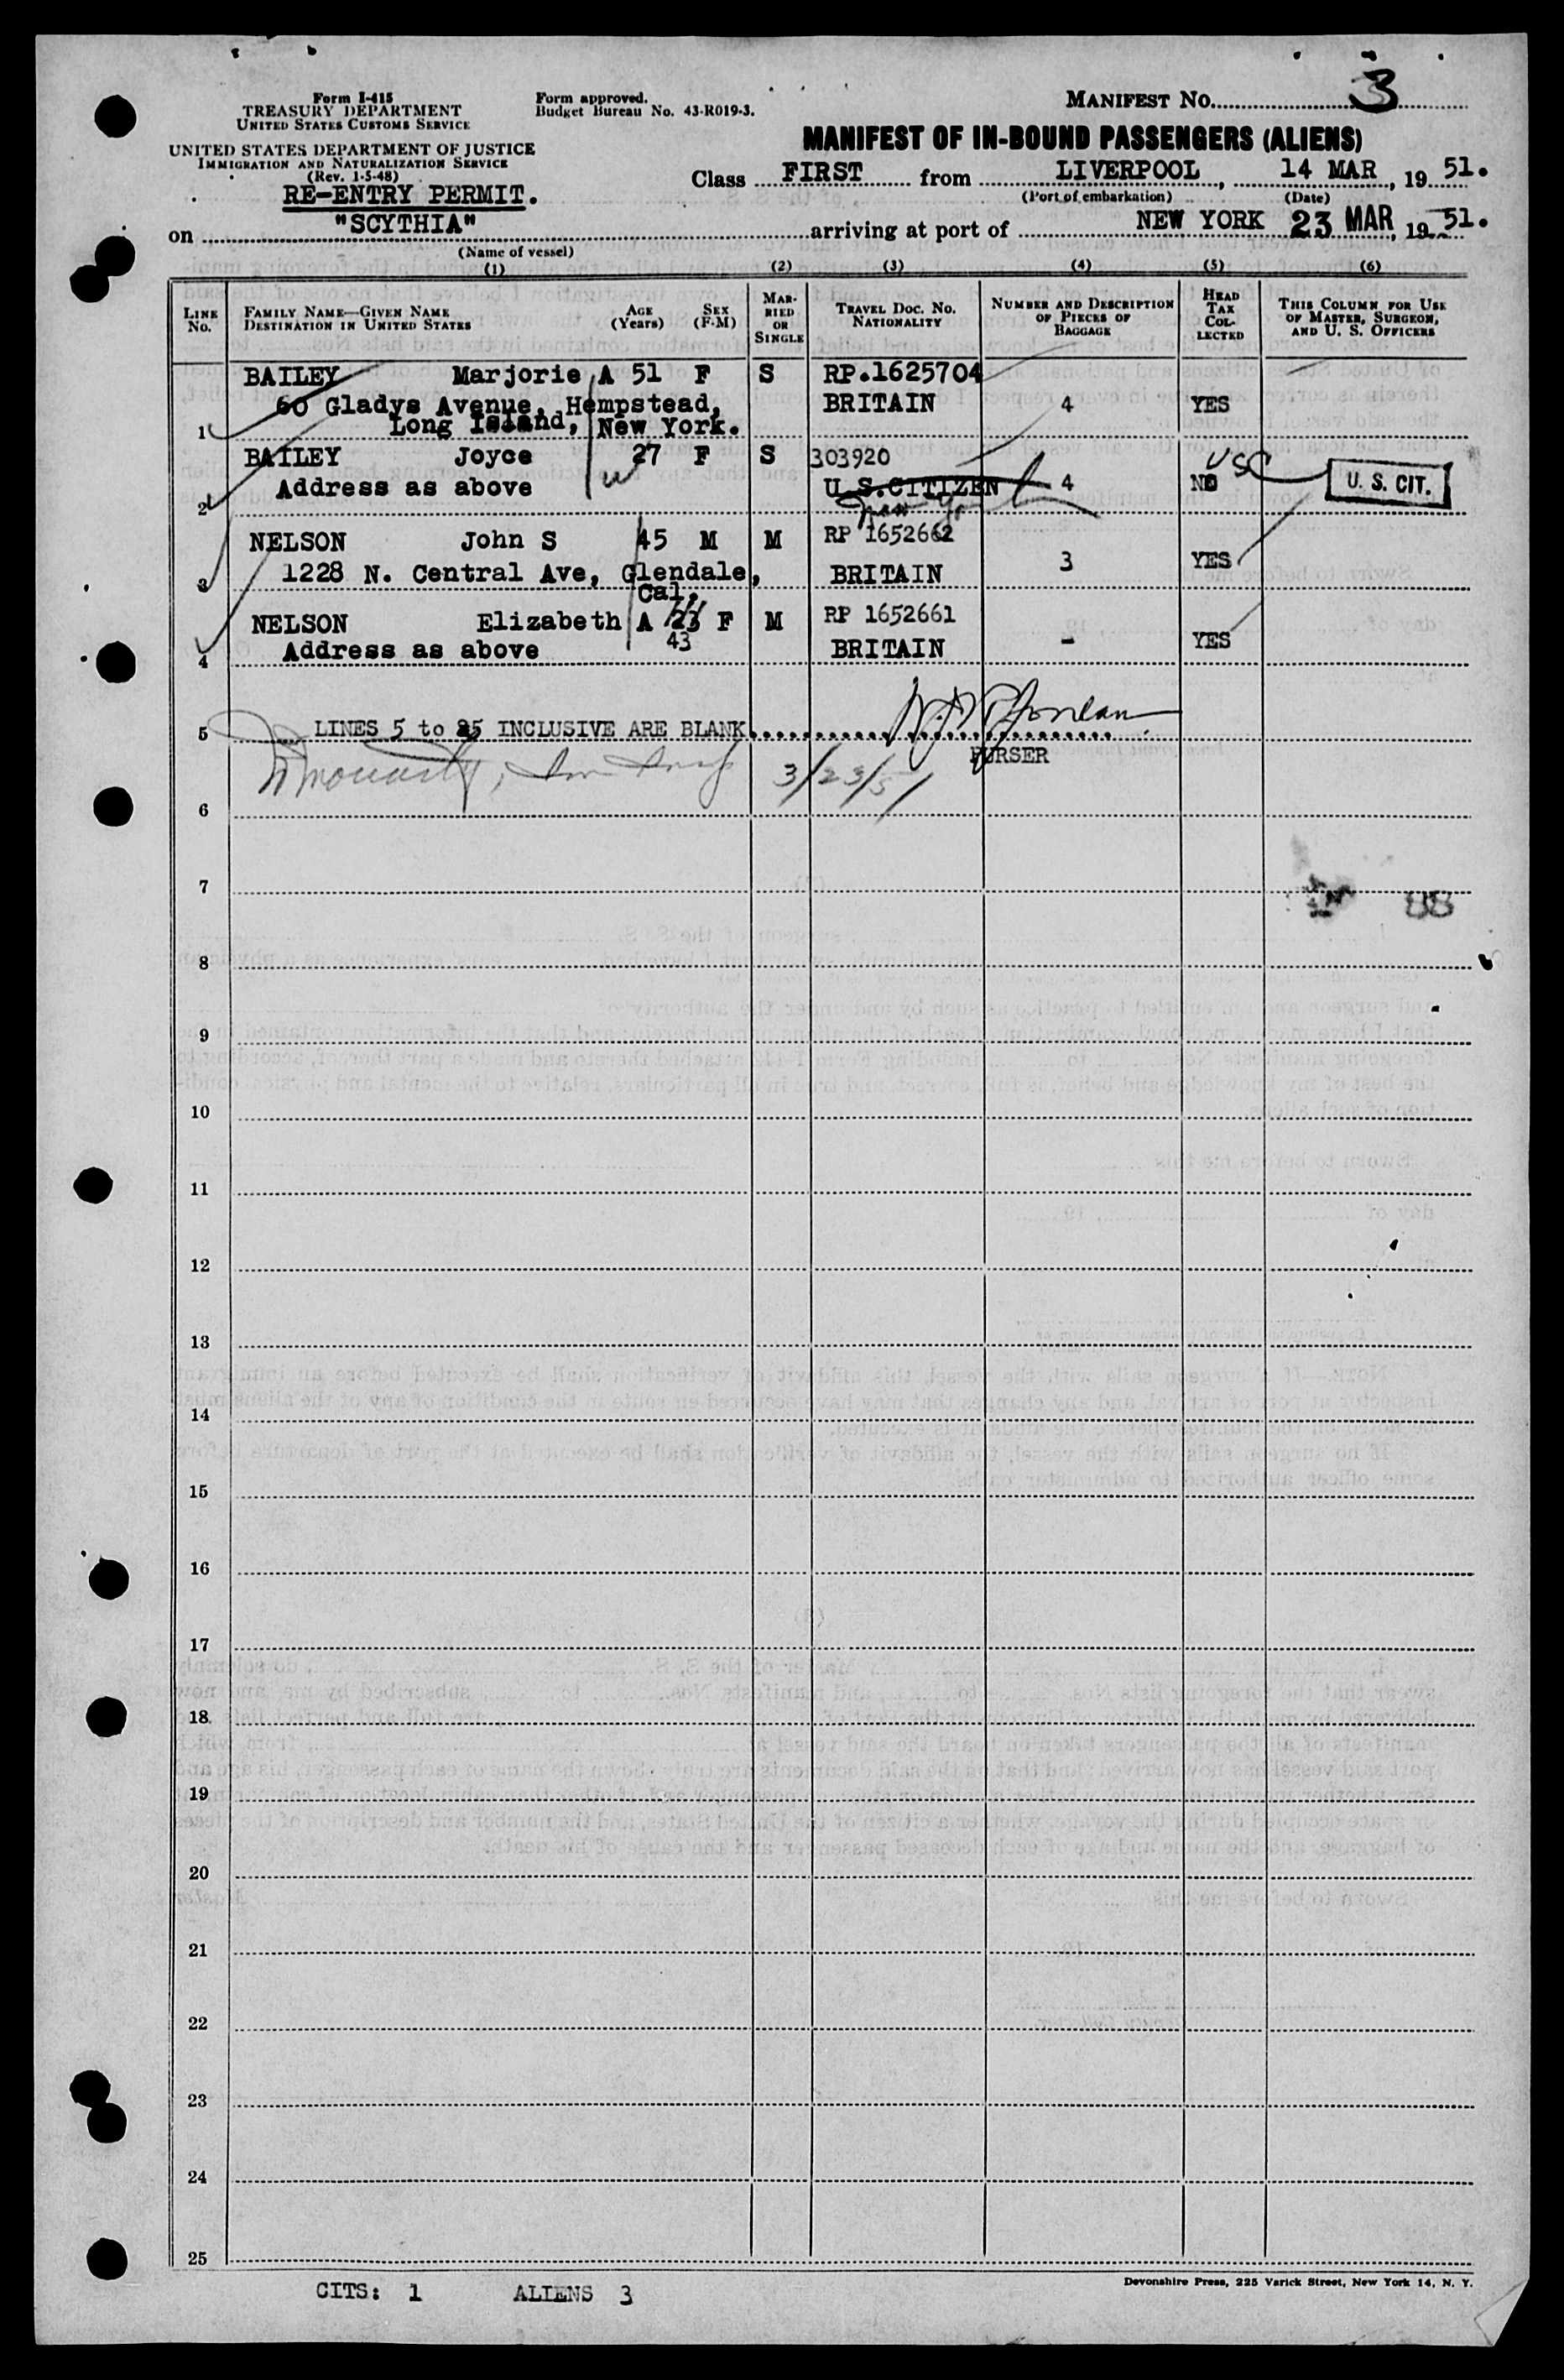 Form I-415
TREASURY DEPARTMENT
UNITED STATES CUSTOMS SERVICE
UNITED STATES DEPARTMENT OF JUSTICE
IMMIGRATION AND NATURALIZATION SERVICE
(Rev. 1-5-48)
RE-ENTRY PERMIT.
Form approved.
Budget Bureau No. 43-R019-3.
MANIFEST NO. 3
MANIFEST OF IN-BOUND PASSENGERS (ALIENS)
Class FIRST from LIVERPOOL, 14 MAR, 19 51.
(Port of embarkation) (Date)
on "SCYTHIA" arriving at port of NEW YORK 23 MAR, 19 51.
(Name of vessel)
(1) (2) (3) (4) (5) (6)
LINE No. FAMILY NAME—GIVEN NAME DESTINATION IN UNITED STATES AGE (Years) SEX (F-M) MARRIED OR SINGLE TRAVEL DOC. NO. NATIONALITY NUMBER AND DESCRIPTION OF PIECES OF BAGGAGE HEAD TAX COLLECTED THIS COLUMN FOR USE OF MASTER, SURGEON, AND U. S. OFFICERS
BAILEY Marjorie A 51 F S RP.1625704
60 Gladys Avenue, Hempstead, BRITAIN 4 YES
1 Long Island, New York.
BAILEY Joyce 27 F S 303920 USC
Address as above U.S.CITIZEN 4 NO U. S. CIT.
2 New York
NELSON John S 45 M M RP 1652662
1228 N. Central Ave, Glendale, BRITAIN 3 YES
3 Cal.
NELSON Elizabeth A 43 F M RP 1652661
4 Address as above BRITAIN - YES
5 LINES 5 to 25 INCLUSIVE ARE BLANK
PURSER
3/23/51
6
7
88
8
9
10
11
12
13
14
15
16
17
18
19
20
21
22
23
24
25
CITS: 1 ALIENS 3
Devonshire Press, 225 Varick Street, New York 14, N. Y.